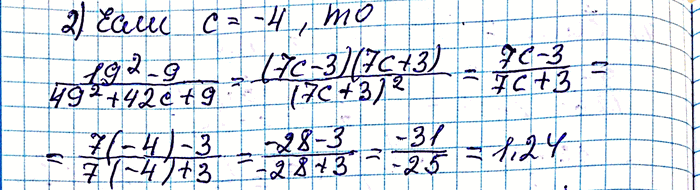 2) Если c = -4, то
(19² - 9)/(49² + 42c + 9) = ((7c - 3)(7c + 3))/((7c + 3)²) = (7c - 3)/(7c + 3) =
= (7(-4) - 3)/(7(-4) + 3) = (-28 - 3)/(-28 + 3) = (-31)/(-25) = 1,24